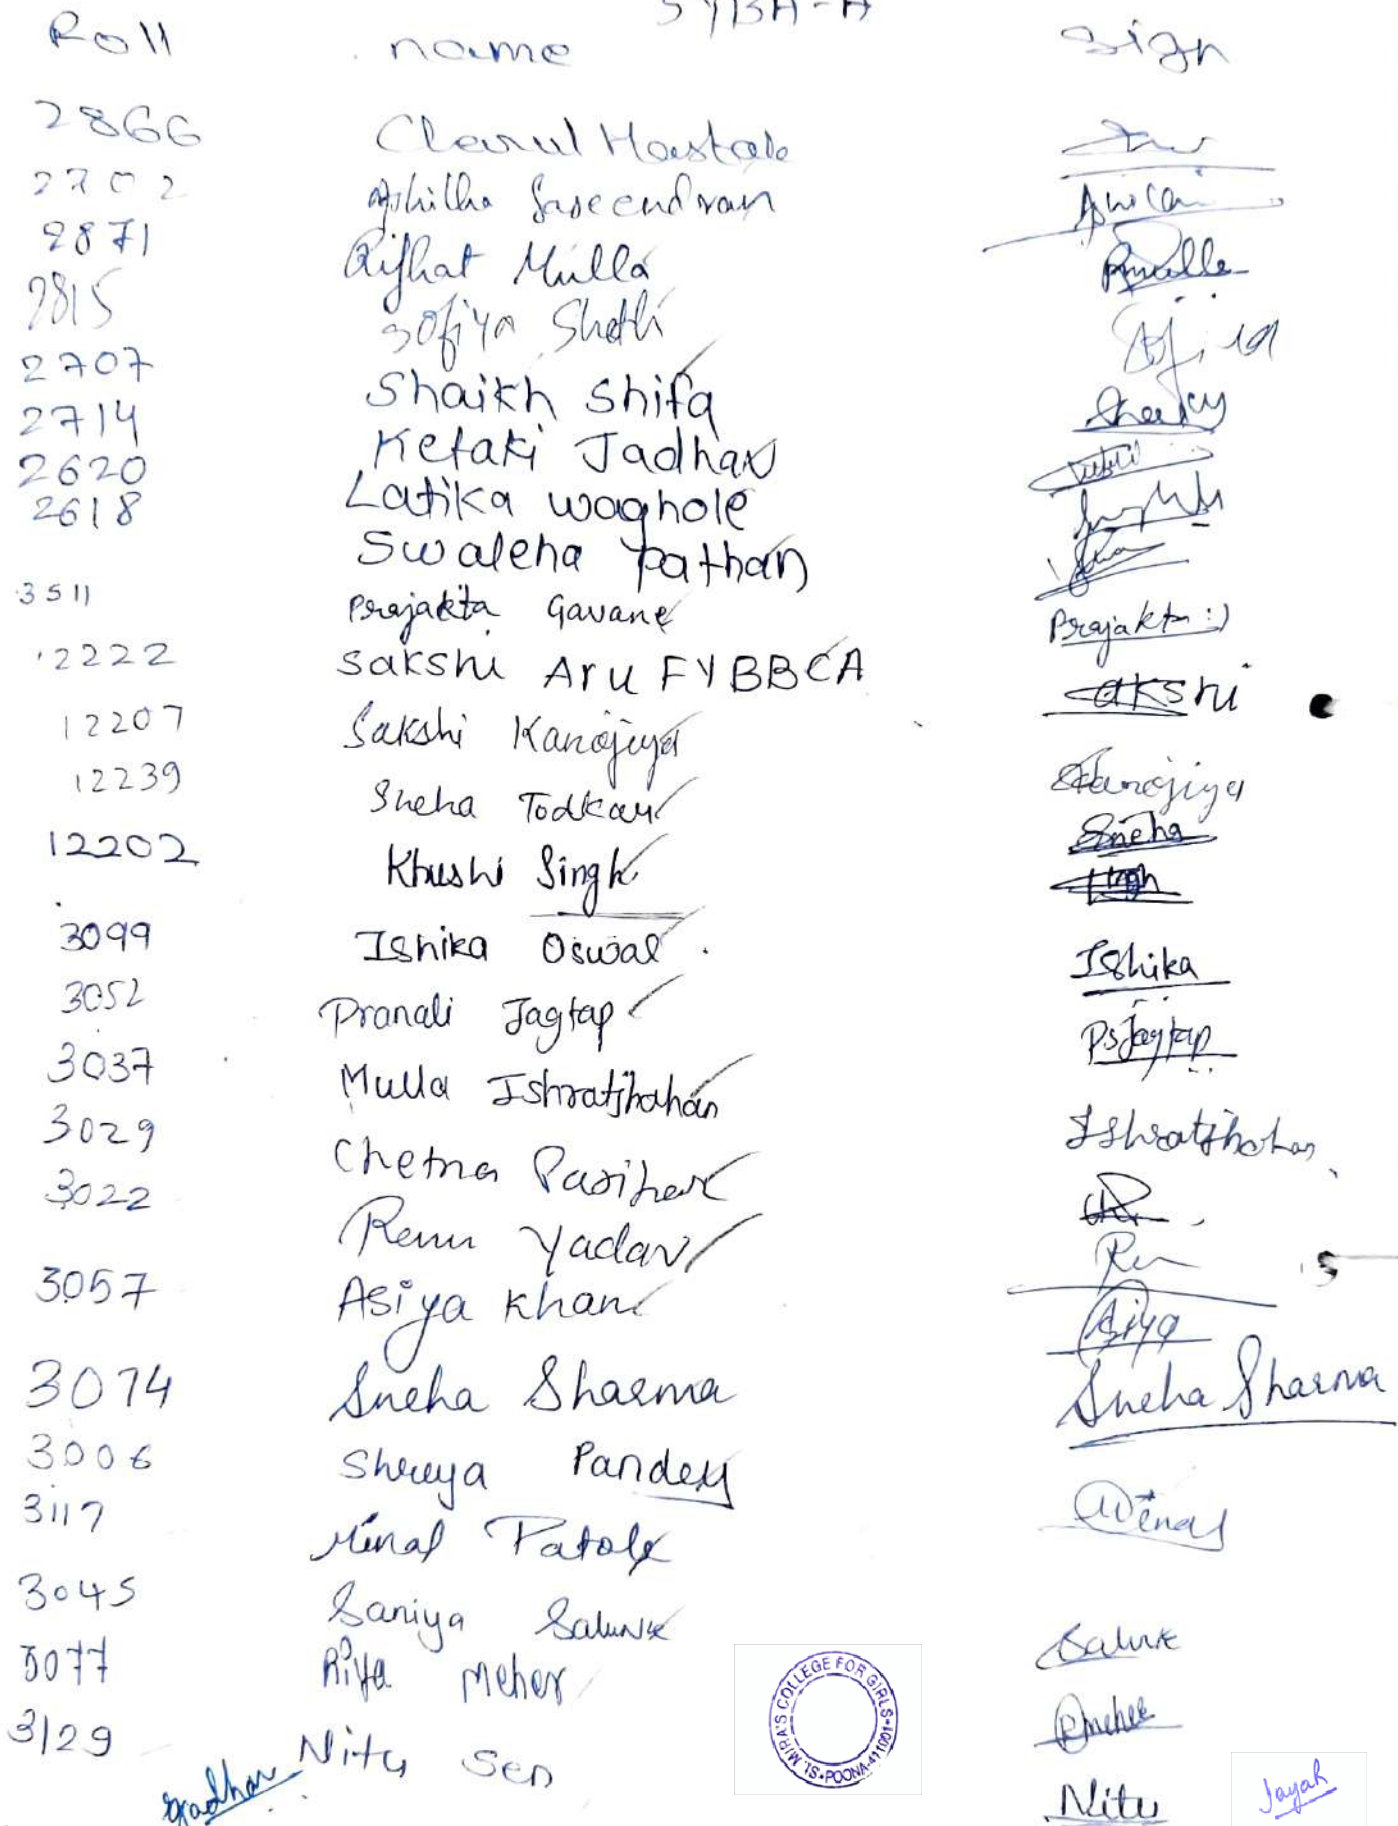 SYBA-A
Roll name Sign
2866 Charul Hastak
2702 Saseendran
2871 Rifhat Mulla Rmulla
2815 Sofiya Shekh Sofiya
2707 Shaikh Shifa
2714 Ketaki Jadhav
2620 Latika waghole
2618 Swaleha Pathan
3511 Prajakta Gavane Prajakta :)
12222 Sakshi Aru FYBBCA Sakshi
12207 Sakshi Kanojiya Kanojiya
12239 Sneha Todkar Sneha
12202 Khushi Singh Singh
3099 Ishika Oswal Ishika
3052 Pranali Jagtap PsJagtap
3037 Mulla Ishratjhahan Ishratjhahan
3029 Chetna Parihar
3022 Renu Yadav Ren
3057 Asiya Khan Asiya
3074 Sneha Sharma Sneha Sharma
3006 Shreya Pandey
3117 Minal Patole Minal
3045 Saniya Salunke Salunke
3077 Riya Meher Rmeher
3129 Nitu Sen Nitu
ST. MIRA'S COLLEGE FOR GIRLS • POONA-411001 •
Jayah